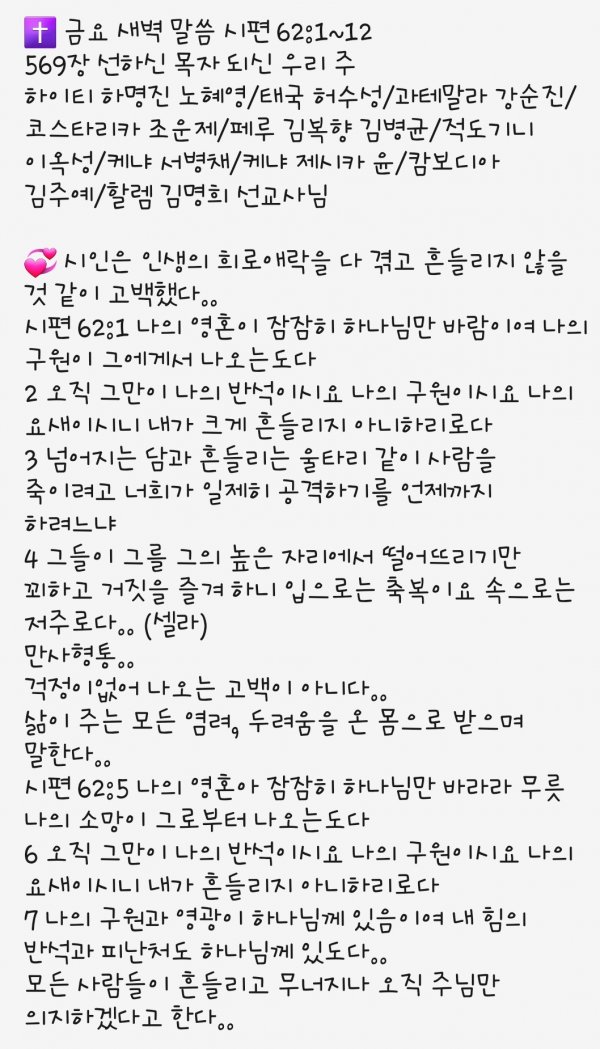 ✝️ 금요 새벽 말씀 시편 62:1~12
569장 선하신 목자 되신 우리 주
하이티 하명진 노혜영/태국 허수성/과테말라 강순진/
코스타리카 조운제/페루 김복향 김병균/적도기니
이옥성/케냐 서병채/케냐 제시카 윤/캄보디아
김주예/할렘 김명희 선교사님

💞 시인은 인생의 희로애락을 다 겪고 흔들리지 않을
것 같이 고백했다..
시편 62:1 나의 영혼이 잠잠히 하나님만 바람이여 나의
구원이 그에게서 나오는도다
2 오직 그만이 나의 반석이시요 나의 구원이시요 나의
요새이시니 내가 크게 흔들리지 아니하리로다
3 넘어지는 담과 흔들리는 울타리 같이 사람을
죽이려고 너희가 일제히 공격하기를 언제까지
하려느냐
4 그들이 그를 그의 높은 자리에서 떨어뜨리기만
꾀하고 거짓을 즐겨 하니 입으로는 축복이요 속으로는
저주로다.. (셀라)
만사형통..
걱정이없어 나오는 고백이 아니다..
삶이 주는 모든 염려, 두려움을 온 몸으로 받으며
말한다..
시편 62:5 나의 영혼아 잠잠히 하나님만 바라라 무릇
나의 소망이 그로부터 나오는도다
6 오직 그만이 나의 반석이시요 나의 구원이시요 나의
요새이시니 내가 흔들리지 아니하리로다
7 나의 구원과 영광이 하나님께 있음이여 내 힘의
반석과 피난처도 하나님께 있도다..
모든 사람들이 흔들리고 무너지나 오직 주님만
의지하겠다고 한다..